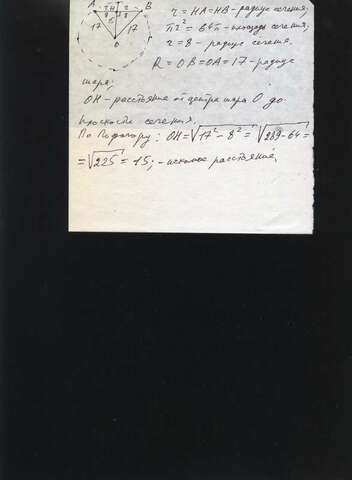 A H B
r r
8 8
17 17
O
r = HA = HB - радиус сечения;
πr² = 64π - площадь сечения;
r = 8 - радиус сечения.
R = OB = OA = 17 - радиус
шара;
OH - расстояние от центра шара O до
плоскости сечения.
По Пифагору: OH = √17² - 8² = √289 - 64 =
= √225 = 15; - искомое расстояние.